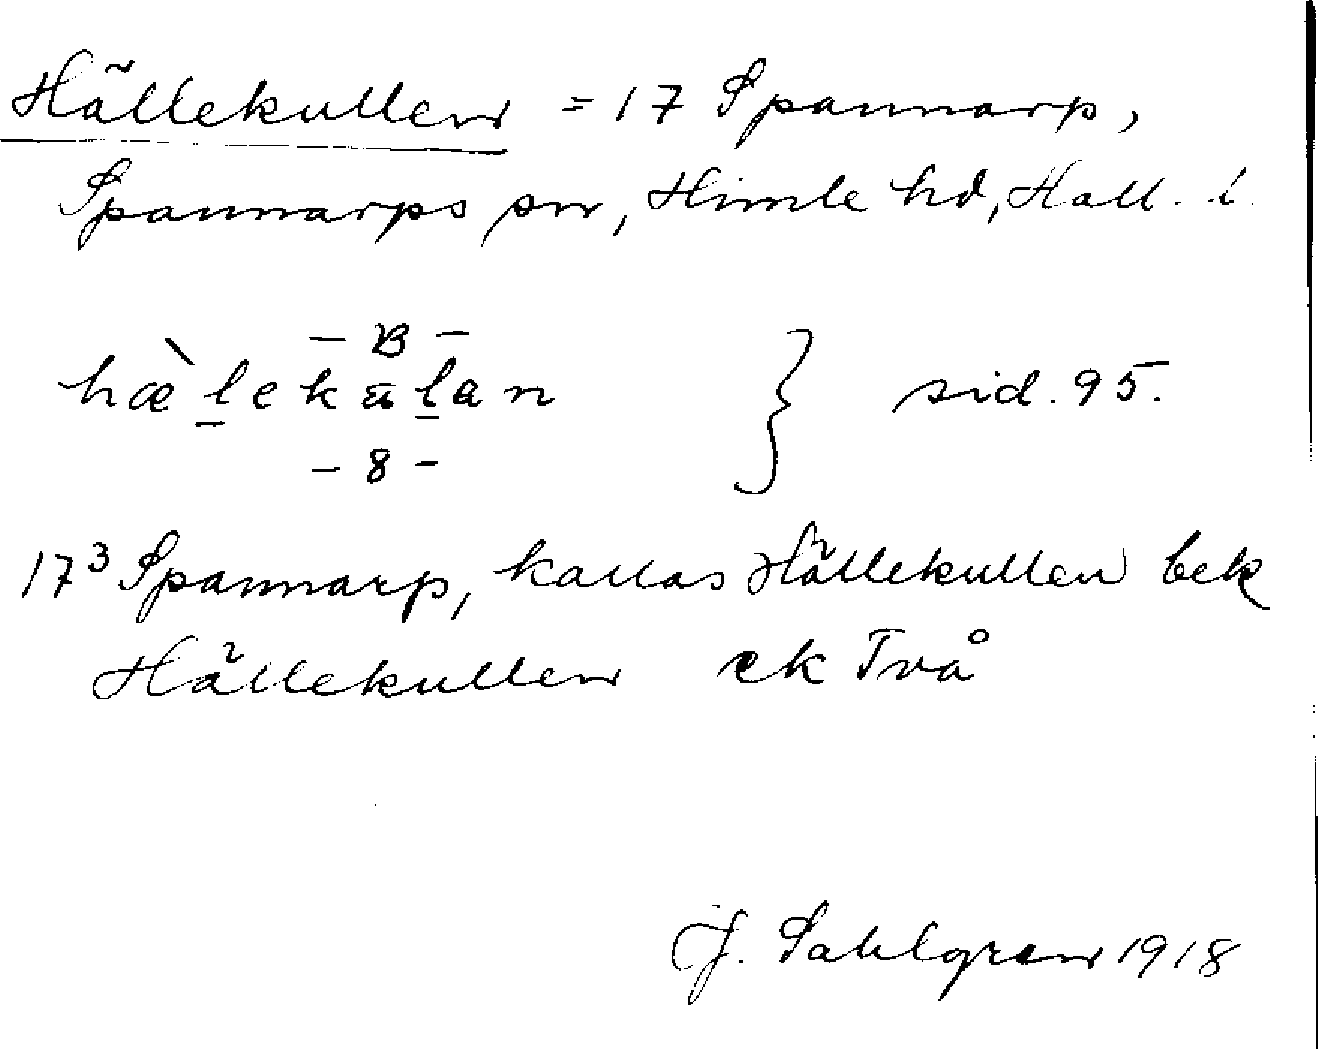 Hällekullen = 17 Spannarp,
Spannarps sn, Himle hd, Hall. l.
– B –
hæ̀lekulan } sid. 95.
– 8 –
17³ Spannarp, kallas Hällekullen bek
Hällekullen ek Två
J. Sahlgren 1918